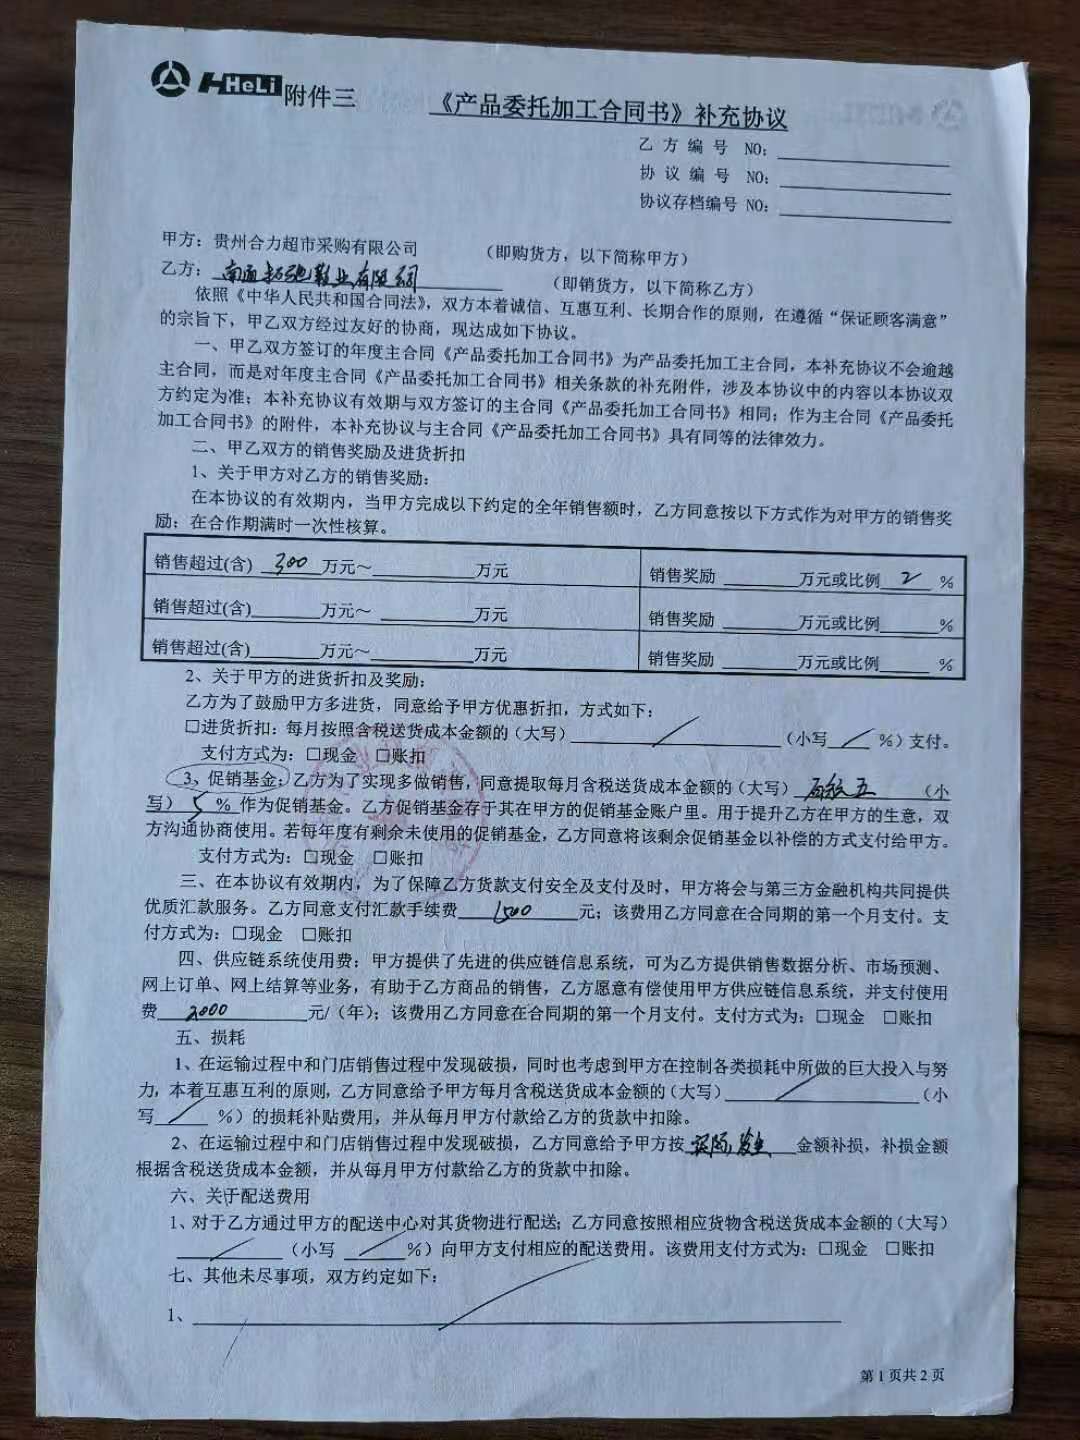 HeLi 附件三
《产品委托加工合同书》补充协议
乙 方 编 号 NO:
协 议 编 号 NO:
协议存档编号 NO:
甲方：贵州合力超市采购有限公司 （即购货方，以下简称甲方）
乙方：南通 鞋业有限公司 （即销货方，以下简称乙方）
依照《中华人民共和国合同法》，双方本着诚信、互惠互利、长期合作的原则，在遵循“保证顾客满意”
的宗旨下，甲乙双方经过友好的协商，现达成如下协议。
一、甲乙双方签订的年度主合同《产品委托加工合同书》为产品委托加工主合同，本补充协议不会逾越
主合同，而是对年度主合同《产品委托加工合同书》相关条款的补充附件，涉及本协议中的内容以本协议双
方约定为准；本补充协议有效期与双方签订的主合同《产品委托加工合同书》相同；作为主合同《产品委托
加工合同书》的附件，本补充协议与主合同《产品委托加工合同书》具有同等的法律效力。
二、甲乙双方的销售奖励及进货折扣
1、关于甲方对乙方的销售奖励：
在本协议的有效期内，当甲方完成以下约定的全年销售额时，乙方同意按以下方式作为对甲方的销售奖
励：在合作期满时一次性核算。
销售超过(含) 300 万元～ 万元 销售奖励 万元或比例 2 %
销售超过(含) 万元～ 万元 销售奖励 万元或比例 %
销售超过(含) 万元～ 万元 销售奖励 万元或比例 %
2、关于甲方的进货折扣及奖励：
乙方为了鼓励甲方多进货，同意给予甲方优惠折扣，方式如下：
□进货折扣：每月按照含税送货成本金额的（大写） / （小写 / %）支付。
支付方式为：□现金 □账扣
3、促销基金：乙方为了实现多做销售，同意提取每月含税送货成本金额的（大写） 百分之五 （小
写） 5 % 作为促销基金。乙方促销基金存于其在甲方的促销基金账户里。用于提升乙方在甲方的生意，双
方沟通协商使用。若每年度有剩余未使用的促销基金，乙方同意将该剩余促销基金以补偿的方式支付给甲方。
支付方式为：□现金 □账扣
三、在本协议有效期内，为了保障乙方货款支付安全及支付及时，甲方将会与第三方金融机构共同提供
优质汇款服务。乙方同意支付汇款手续费 1500 元；该费用乙方同意在合同期的第一个月支付。支
付方式为：□现金 □账扣
四、供应链系统使用费：甲方提供了先进的供应链信息系统，可为乙方提供销售数据分析、市场预测、
网上订单、网上结算等业务，有助于乙方商品的销售，乙方愿意有偿使用甲方供应链信息系统，并支付使用
费 2000 元/（年）；该费用乙方同意在合同期的第一个月支付。支付方式为：□现金 □账扣
五、损耗
1、在运输过程中和门店销售过程中发现破损，同时也考虑到甲方在控制各类损耗中所做的巨大投入与努
力，本着互惠互利的原则，乙方同意给予甲方每月含税送货成本金额的（大写） / （小
写 / %）的损耗补贴费用，并从每月甲方付款给乙方的货款中扣除。
2、在运输过程中和门店销售过程中发现破损，乙方同意给予甲方按 实际发生 金额补损，补损金额
根据含税送货成本金额，并从每月甲方付款给乙方的货款中扣除。
六、关于配送费用
1、对于乙方通过甲方的配送中心对其货物进行配送；乙方同意按照相应货物含税送货成本金额的（大写）
/ （小写 / %）向甲方支付相应的配送费用。该费用支付方式为：□现金 □账扣
七、其他未尽事项，双方约定如下：
1、 /
第 1 页共 2 页